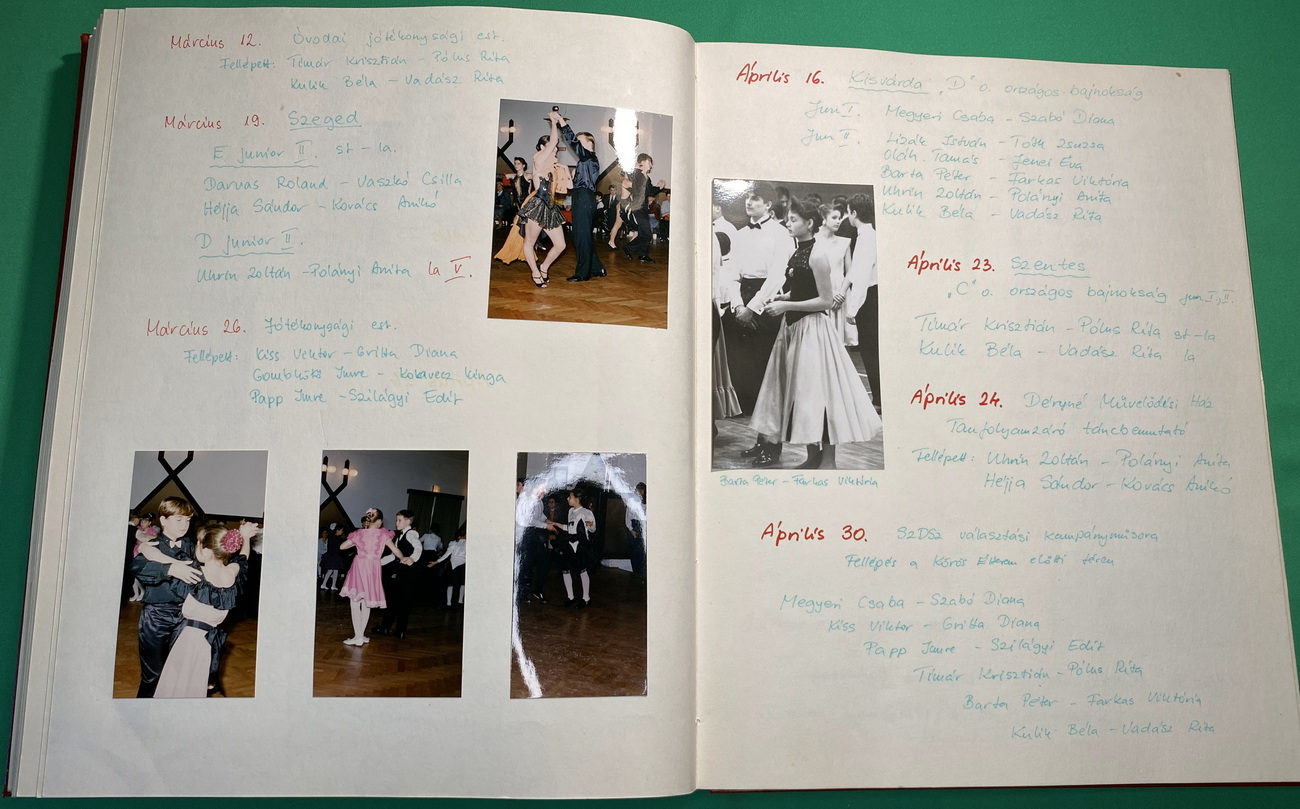 Március 12. Óvodai jótékonysági est.
Fellépett: Tímár Krisztián - Pólus Rita
Kulik Béla - Vadász Rita
Március 19. Szeged
E junior II. st - la.
Darvas Roland - Vaszkó Csilla
Héjja Sándor - Kovács Anikó
D junior II.
Uhrin Zoltán - Polányi Anita la V.
Március 26. Jótékonysági est.
Fellépett: Kiss Viktor - Gritta Diana
Imre - Kinga
Papp Imre - Szilágyi Edit
Április 16. Kisvárda „D" o. országos bajnokság
Jun I. Megyeri Csaba - Szabó Diana
Jun II. István - Tóth Zsuzsa
Oláh Tamás - Jenei Éva
Barta Péter - Farkas Viktória
Uhrin Zoltán - Polányi Anita
Kulik Béla - Vadász Rita
Barta Péter - Farkas Viktória
Április 23. Szentes
„C" o. országos bajnokság jun. I., II.
Tímár Krisztián - Pólus Rita st - la
Kulik Béla - Vadász Rita la
Április 24. Déryné Művelődési Ház
Tanfolyamzáró táncbemutató
Fellépett: Uhrin Zoltán - Polányi Anita
Héjja Sándor - Kovács Anikó
Április 30. SZDSZ választási kampányműsora
Fellépés a Körös Étterem előtti téren
Megyeri Csaba - Szabó Diana
Kiss Viktor - Gritta Diana
Papp Imre - Szilágyi Edit
Tímár Krisztián - Pólus Rita
Barta Péter - Farkas Viktória
Kulik Béla - Vadász Rita